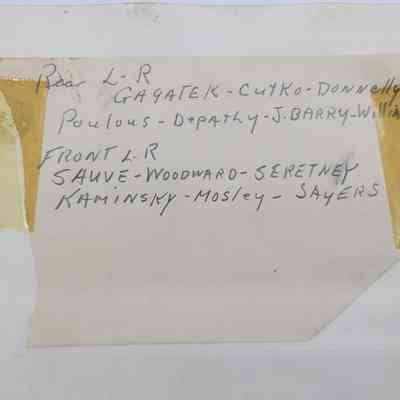 Rear L-R
GAGATEK - Cutko - Donnelly
Poulous - Depathy - J. BARRY - Willia
FRONT L.R
SAUVE - WOODWARD - SERETNEY
KAMINSKY - Mosley - SAYERS